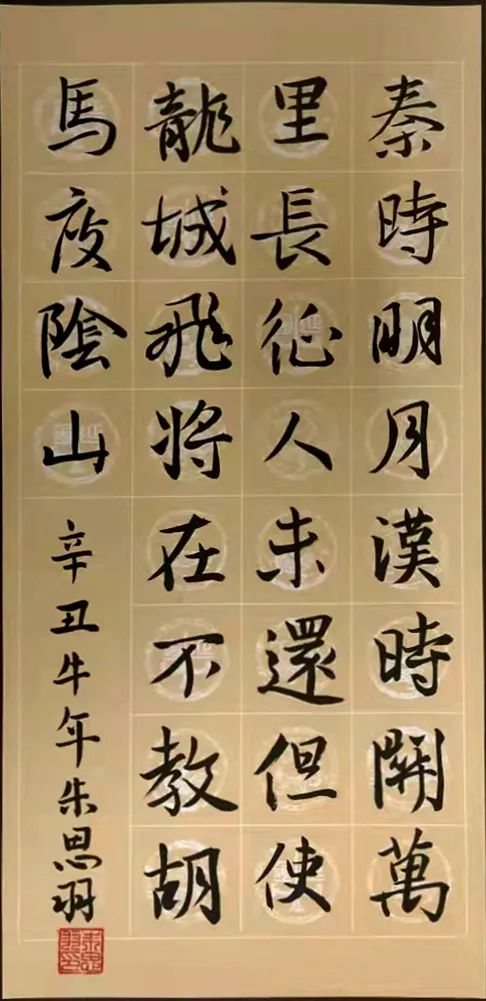 秦時明月漢時關萬
里長征人未還但使
龍城飛将在不教胡
馬度陰山
辛丑牛年朱思羽